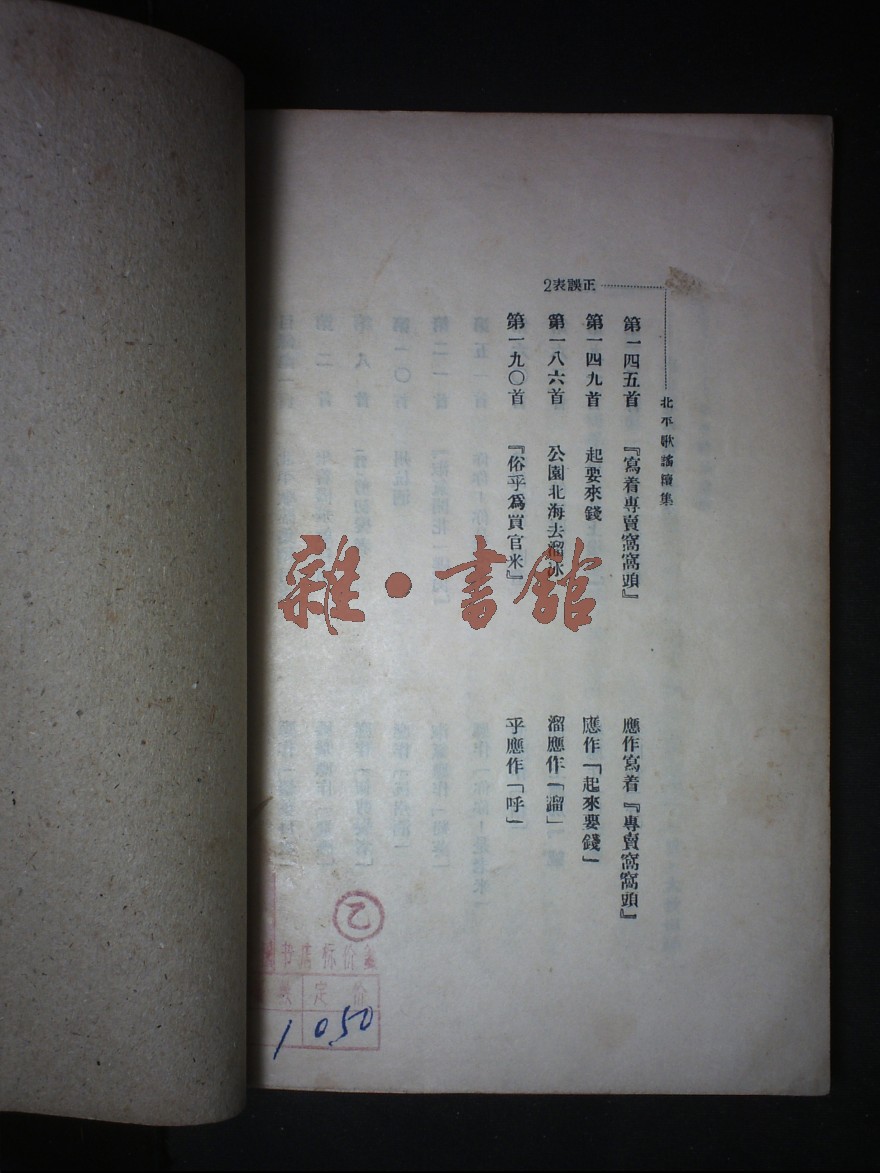 北平歌謠續集
正誤表2
第一四五首 『寫着專賣窩窩頭』 應作寫着『專賣窩窩頭』
第一四九首 起要來錢 應作「起來要錢」
第一八六首 公園北海去溜冰 溜應作「蹓」
第一九〇首 『俗乎爲買官米』 乎應作「呼」
雜·書館
乙
书店标价签
定 价
1 050